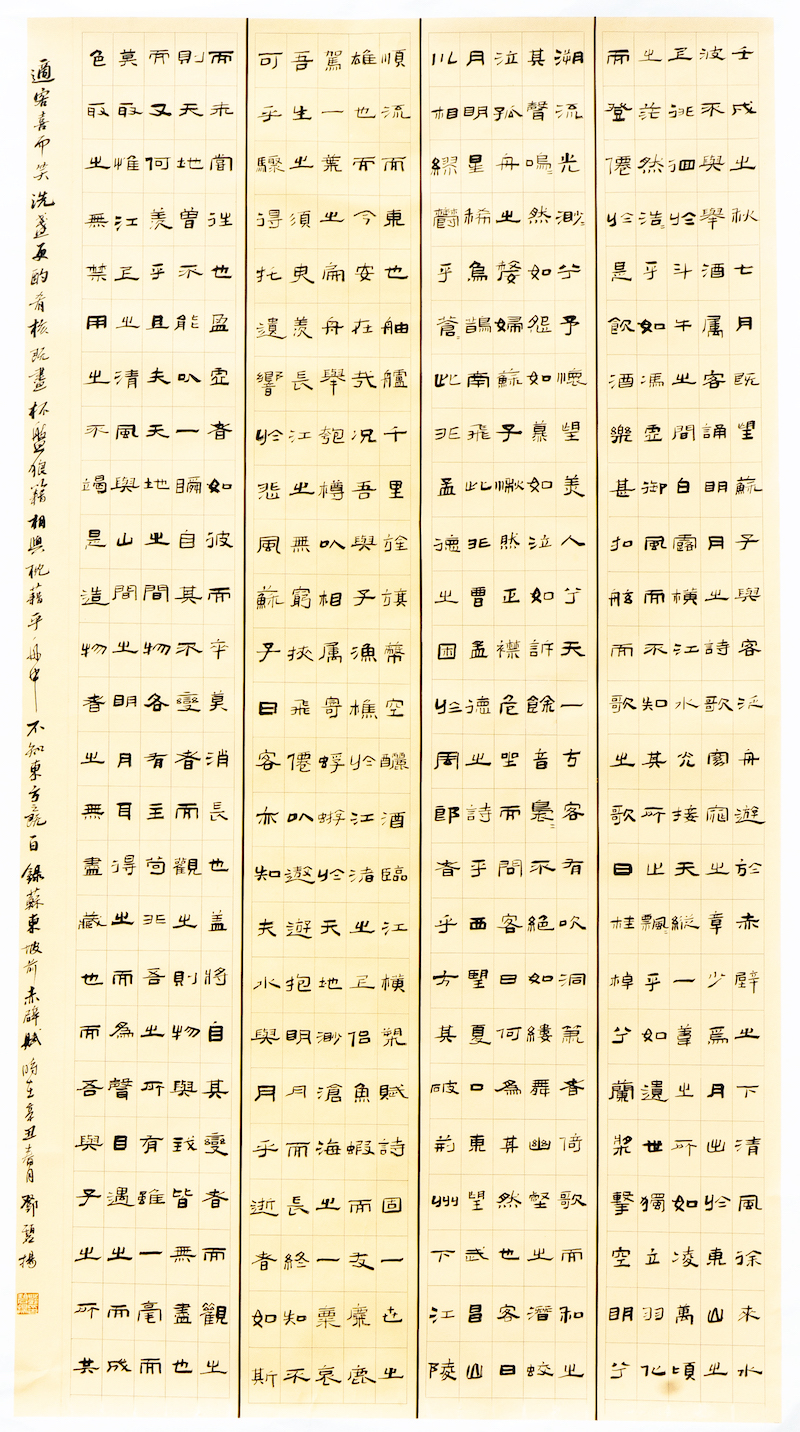 壬戌之秋七月既望蘇子與客泛舟遊於赤壁之下清風徐来水
波不興舉酒属客誦明月之詩歌窈窕之章少焉月出於東山之
上徘徊於斗牛之間白露橫江水光接天縱一葦之所如凌萬頃
之茫然浩〻乎如馮虛御風而不知其所止飄〻乎如遺世獨立羽化
而登僊於是飲酒樂甚扣舷而歌之歌曰桂棹兮蘭槳擊空明兮
溯流光渺〻兮予懷望美人兮天一方客有吹洞簫者倚歌而和之
其聲嗚〻然如怨如慕如泣如訴餘音裊〻不絕如縷舞幽壑之潛蛟
泣孤舟之嫠婦蘇子愀然正襟危坐而問客曰何為其然也客曰
月明星稀烏鵲南飛此非曹孟德之詩乎西望夏口東望武昌山
川相繆鬱乎蒼〻此非孟德之困於周郎者乎方其破荊州下江陵
順流而東也舳艫千里旌旗蔽空釃酒臨江橫槊賦詩固一世之
雄也而今安在哉況吾與子漁樵於江渚之上侶魚蝦而友麋鹿
駕一葉之扁舟舉匏樽以相属寄蜉蝣於天地渺滄海之一粟哀
吾生之須臾羨長江之無窮挾飛僊以遨遊抱明月而長終知不
可乎驟得托遺響於悲風蘇子曰客亦知夫水與月乎逝者如斯
而未嘗往也盈虛者如彼而卒莫消長也盖將自其變者而觀之
則天地曾不能以一瞬自其不變者而觀之則物與我皆無盡也
而又何羨乎且夫天地之間物各有主苟非吾之所有雖一毫而
莫取惟江上之清風與山間之明月耳得之而為聲目遇之而成
色取之無禁用之不竭是造物者之無盡藏也而吾與子之所共
適客喜而笑洗盞更酌肴核既盡杯盤狼籍相與枕藉乎舟中不知東方之既白 錄蘇東坡前赤壁賦時在辛丑春月 鄧碧揚